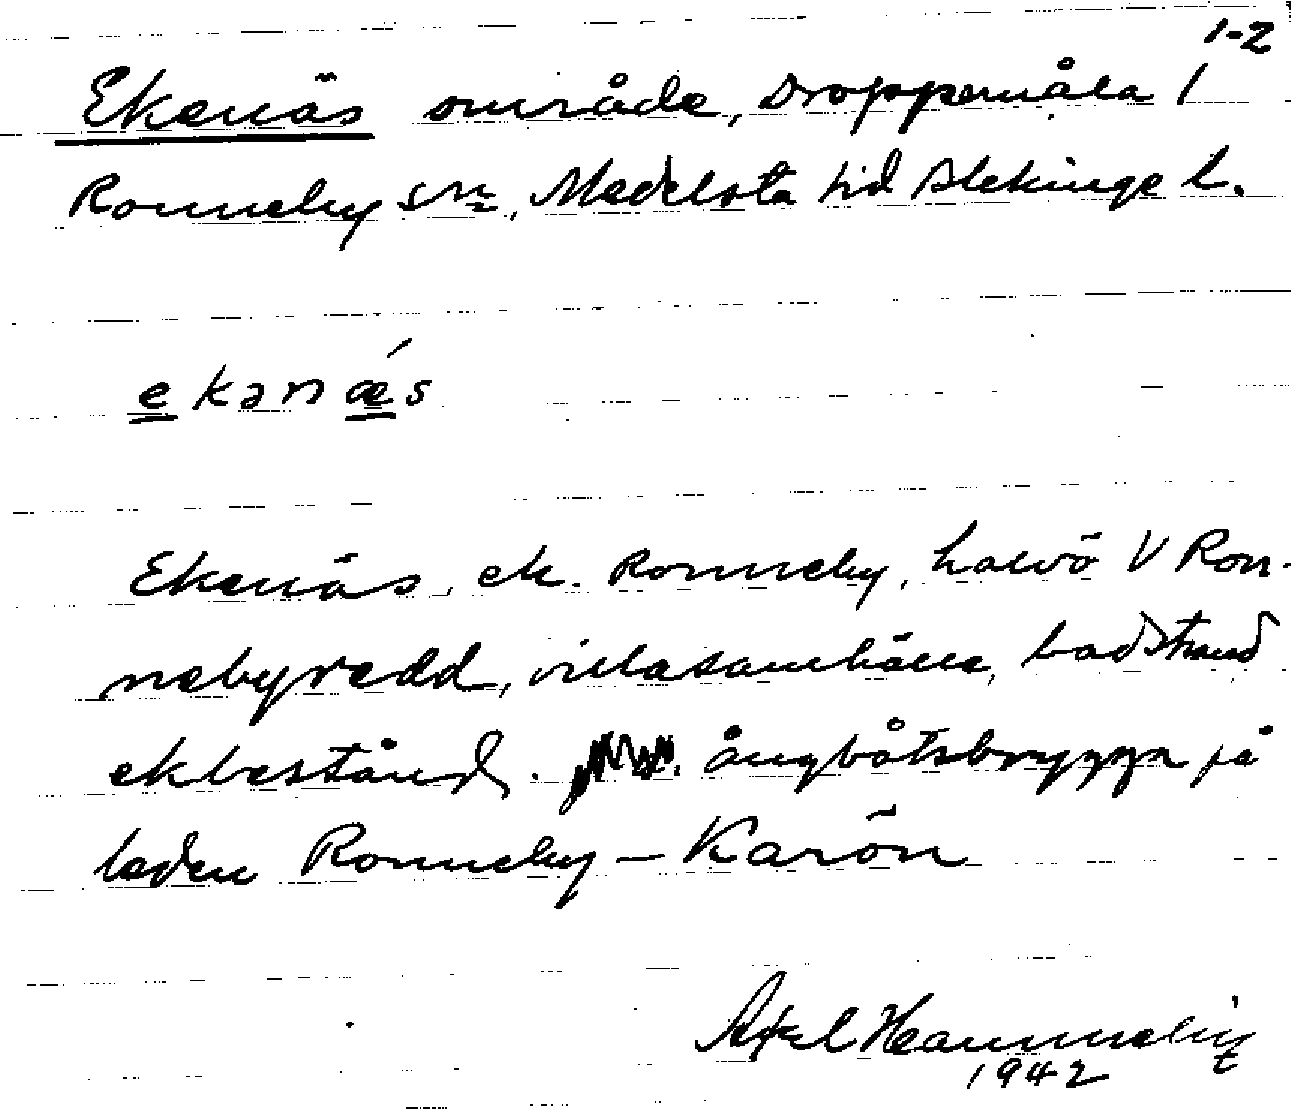 1-2
Ekenäs område, Droppemåla 1
Ronneby sn, Medelsta hd Blekinge l.
ekanæ´s
Ekenäs, ek. Ronneby, halvö V Ron-
nebyredd, villasamhälle, badstrand
ekbestånd. ångbåtsbrygga på
leden Ronneby – Karön
Axel
1942